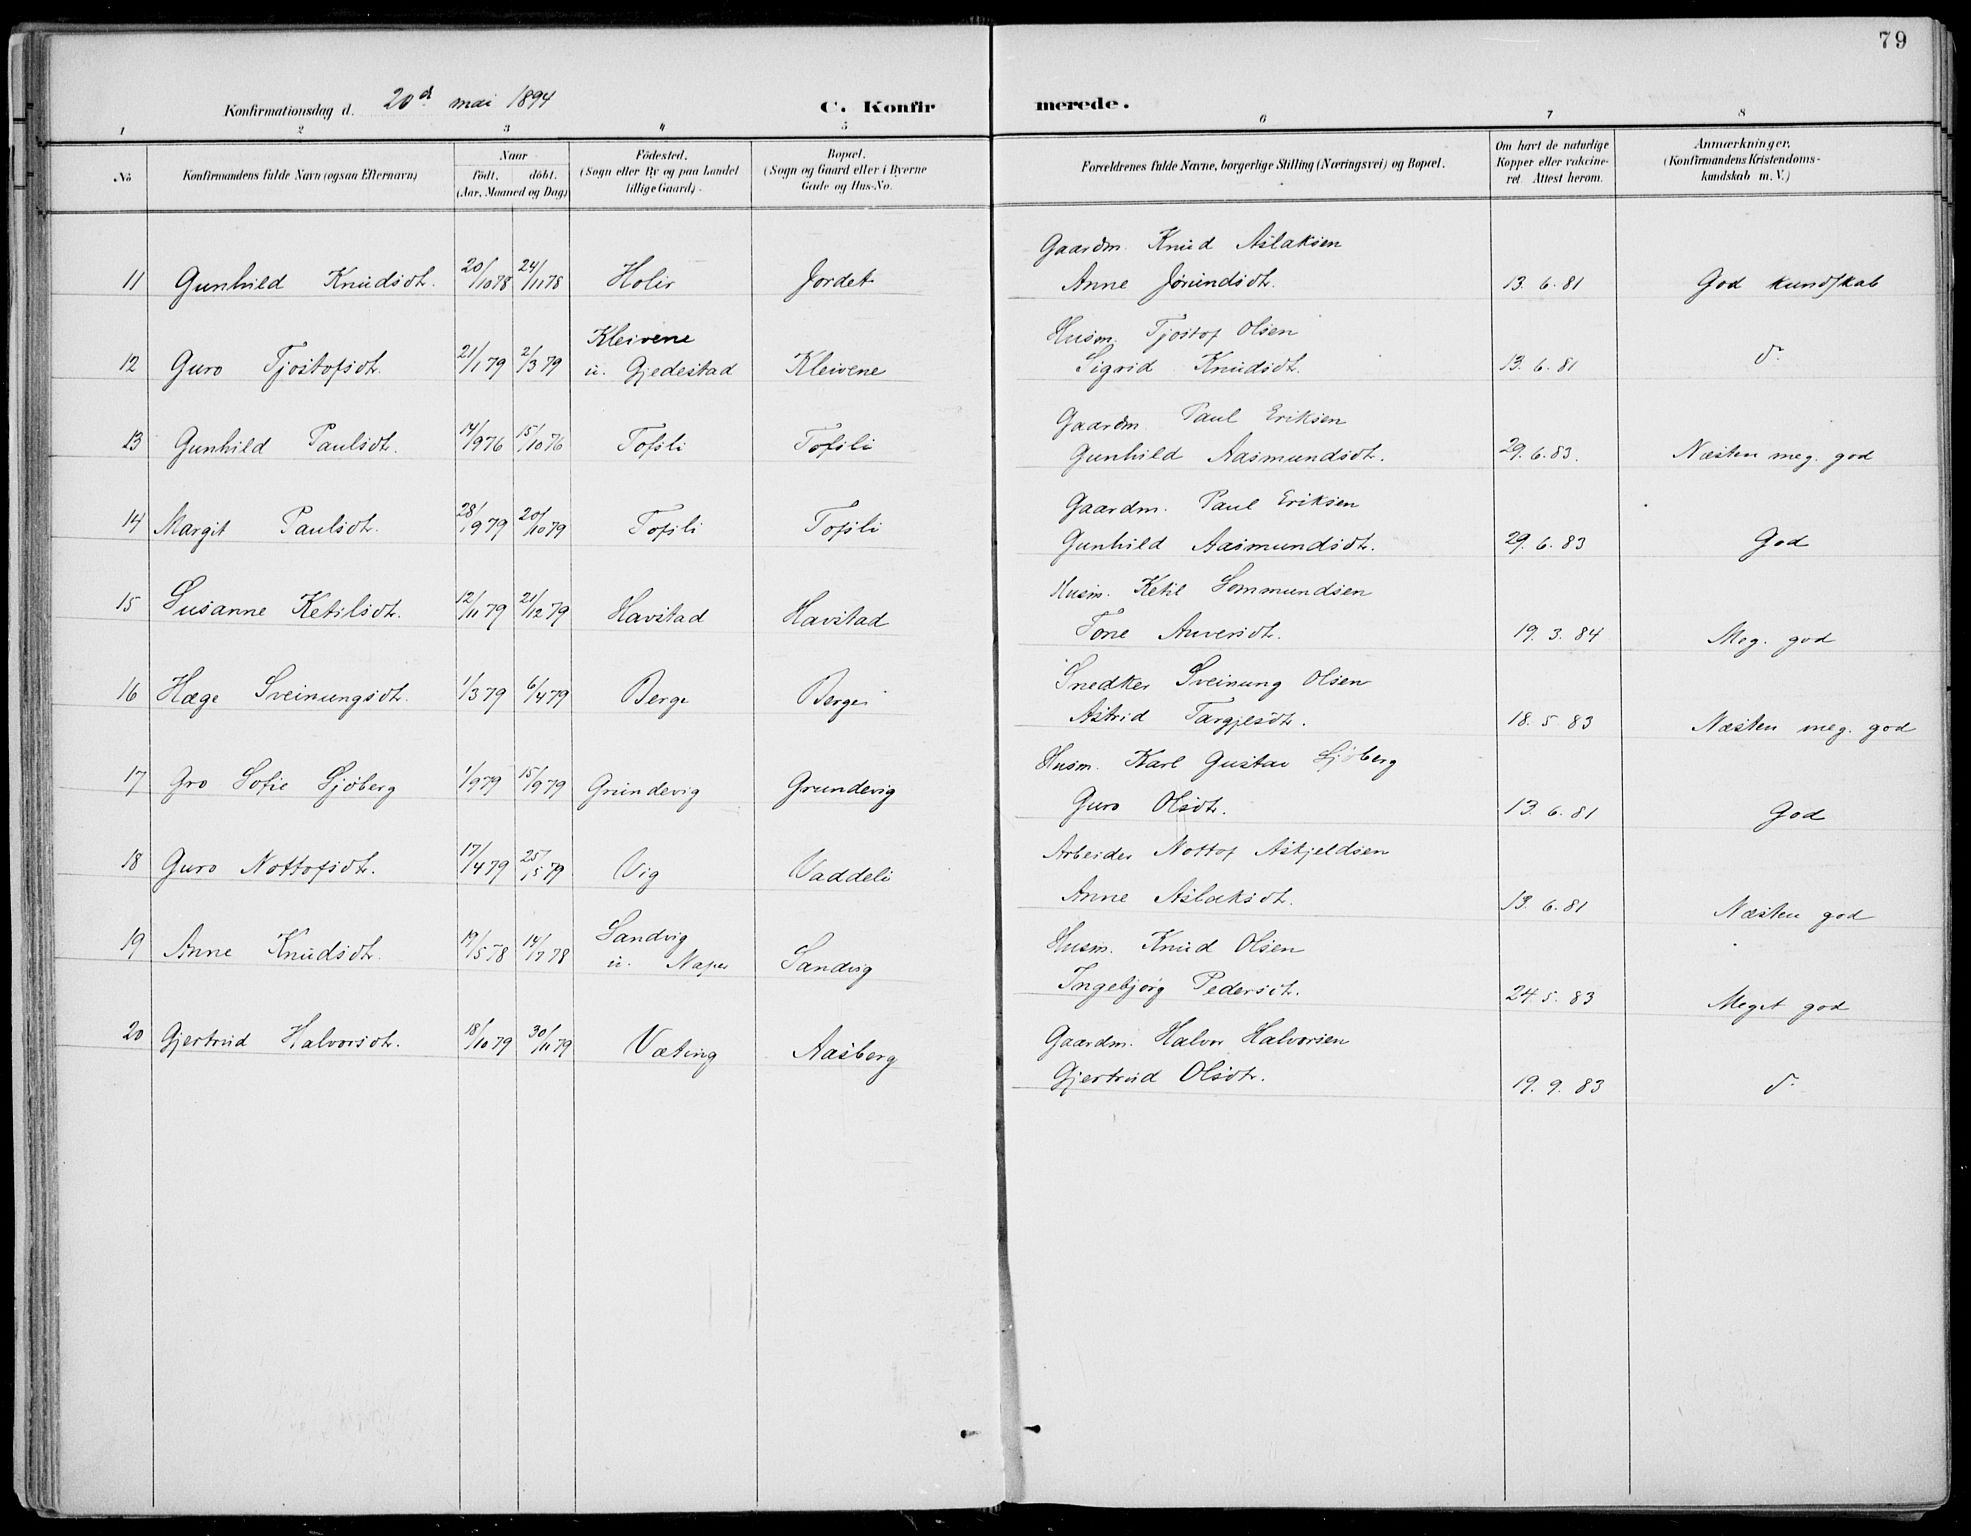 79
Konfirmationsdag d. 20d mai 1894
C. Konfirmerede.
1 2 3 4 5 6 7 8
No
Konfirmandens fulde Navn (ogsaa Efternavn)
Naar
födt. döbt.
(Aar, Maaned og Dag)
Födested.
(Sogn eller By og paa Landet
tillige Gaard).
Bopæl.
(Sogn og Gaard eller i Byerne
Gade og Hus-No.
Forældrenes fulde Navne, borgerlige Stilling (Næringsvei) og Bopæl.
Om havt de naturlige
Kopper eller vakcine-
ret. Attest herom.
Anmærkninger,
(Konfirmandens Kristendoms-
kundskab m. V.)
Gaardm. Knud Aslaksen
11 Gunhild Knudsdtr. 20/10 78 24/11 78 Holir Jordet Anne Jörundsdtr. 13. 6. 81 God kundskab
Kleivene Husm. Tjostof Olsen
12 Guro Tjostofsdtr. 21/1 79 2/3 79 u. Gjedestad Kleivene Sigrid Knudsdtr. 13. 6. 81 d.
Gaardm. Paul Eriksen
13 Gunhild Paulsdtr. 14/9 76 15/10 76 Tofsli Tofsli Gunhild Aasmundsdtr. 29. 6. 83. Næsten meg. god
Gaardm. Paul Eriksen
14 Margit Paulsdtr. 28/9 79 20/10 79 Tofsli Tofsli Gunhild Aasmundsdtr. 29. 6. 83 God
Husm. Ketil Sommundsen
15 Susanne Ketilsdtr. 12/11 79 21/12 79 Havstad Havstad Tone Anversdtr. 19. 3. 84 Meg. god
Snedker Sveinung Olsen
16 Hæge Sveinungsdtr. 1/3 79 6/4 79 Berge Berge Astrid Targjesdtr. 18. 5 83 Næsten meg. god
Husm. Karl Gustav Sjöberg
17 Gro Sofie Sjöberg 1/9 79 15/9 79 Grundevig Grundevig Guro Olsdtr. 13. 6. 81 God
Arbeider Nottof Askjeldsen
18 Guro Nottofsdtr. 17/4 79 25/5 79 Vig Vaddeli Anne Aslaksdtr. 13. 6. 81 Næsten god
Sandvig Husm. Knud Olsen
19 Anne Knudsdtr. 19/5 78 14/7 78 u. Napes Sandvig Ingebjörg Pedersdtr. 24. 5. 83 Meget god
Gaardm. Halvor Halvorsen
20 Gjertrud Halvorsdtr. 18/10 79 30/11 79 Væting Aasberg Gjertrud Olsdtr. 19. 9. 83 d.